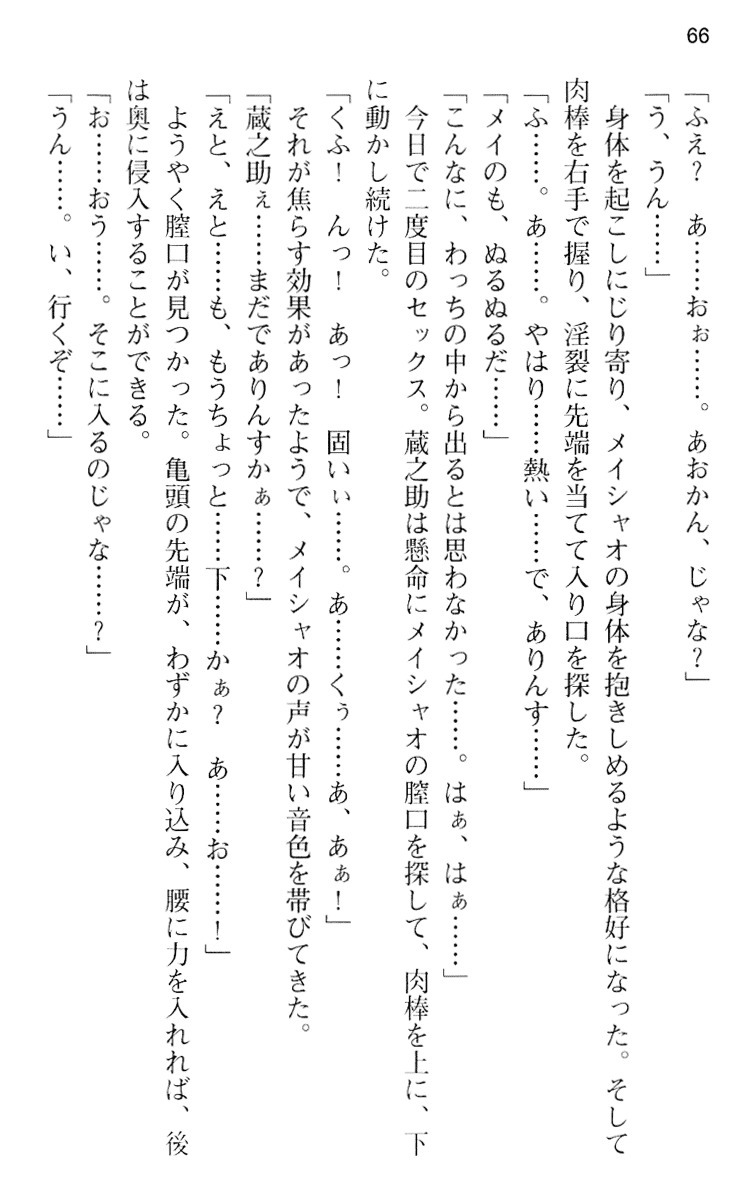 66
「ふえ？　あ……おぉ……。あおかん、じゃな？」
「う、うん……」
　身体を起こしにじり寄り、メイシャオの身体を抱きしめるような格好になった。そして
肉棒を右手で握り、淫裂に先端を当てて入り口を探した。
「ふ……。あ……。やはり……熱い……で、ありんす……」
「メイのも、ぬるぬるだ……」
「こんなに、わっちの中から出るとは思わなかった……。はぁ、はぁ……」
　今日で二度目のセックス。蔵之助は懸命にメイシャオの膣口を探して、肉棒を上に、下
に動かし続けた。
「くふ！　んっ！　あっ！　固いぃ……。あ……くぅ……あ、あぁ！」
　それが焦らす効果があったようで、メイシャオの声が甘い音色を帯びてきた。
「蔵之助ぇ……まだでありんすかぁ……？」
「えと、えと……も、もうちょっと……下……かぁ？　あ……お……！」
　ようやく膣口が見つかった。亀頭の先端が、わずかに入り込み、腰に力を入れれば、後
は奥に侵入することができる。
「お……おう……。そこに入るのじゃな……？」
「うん……。い、行くぞ……」